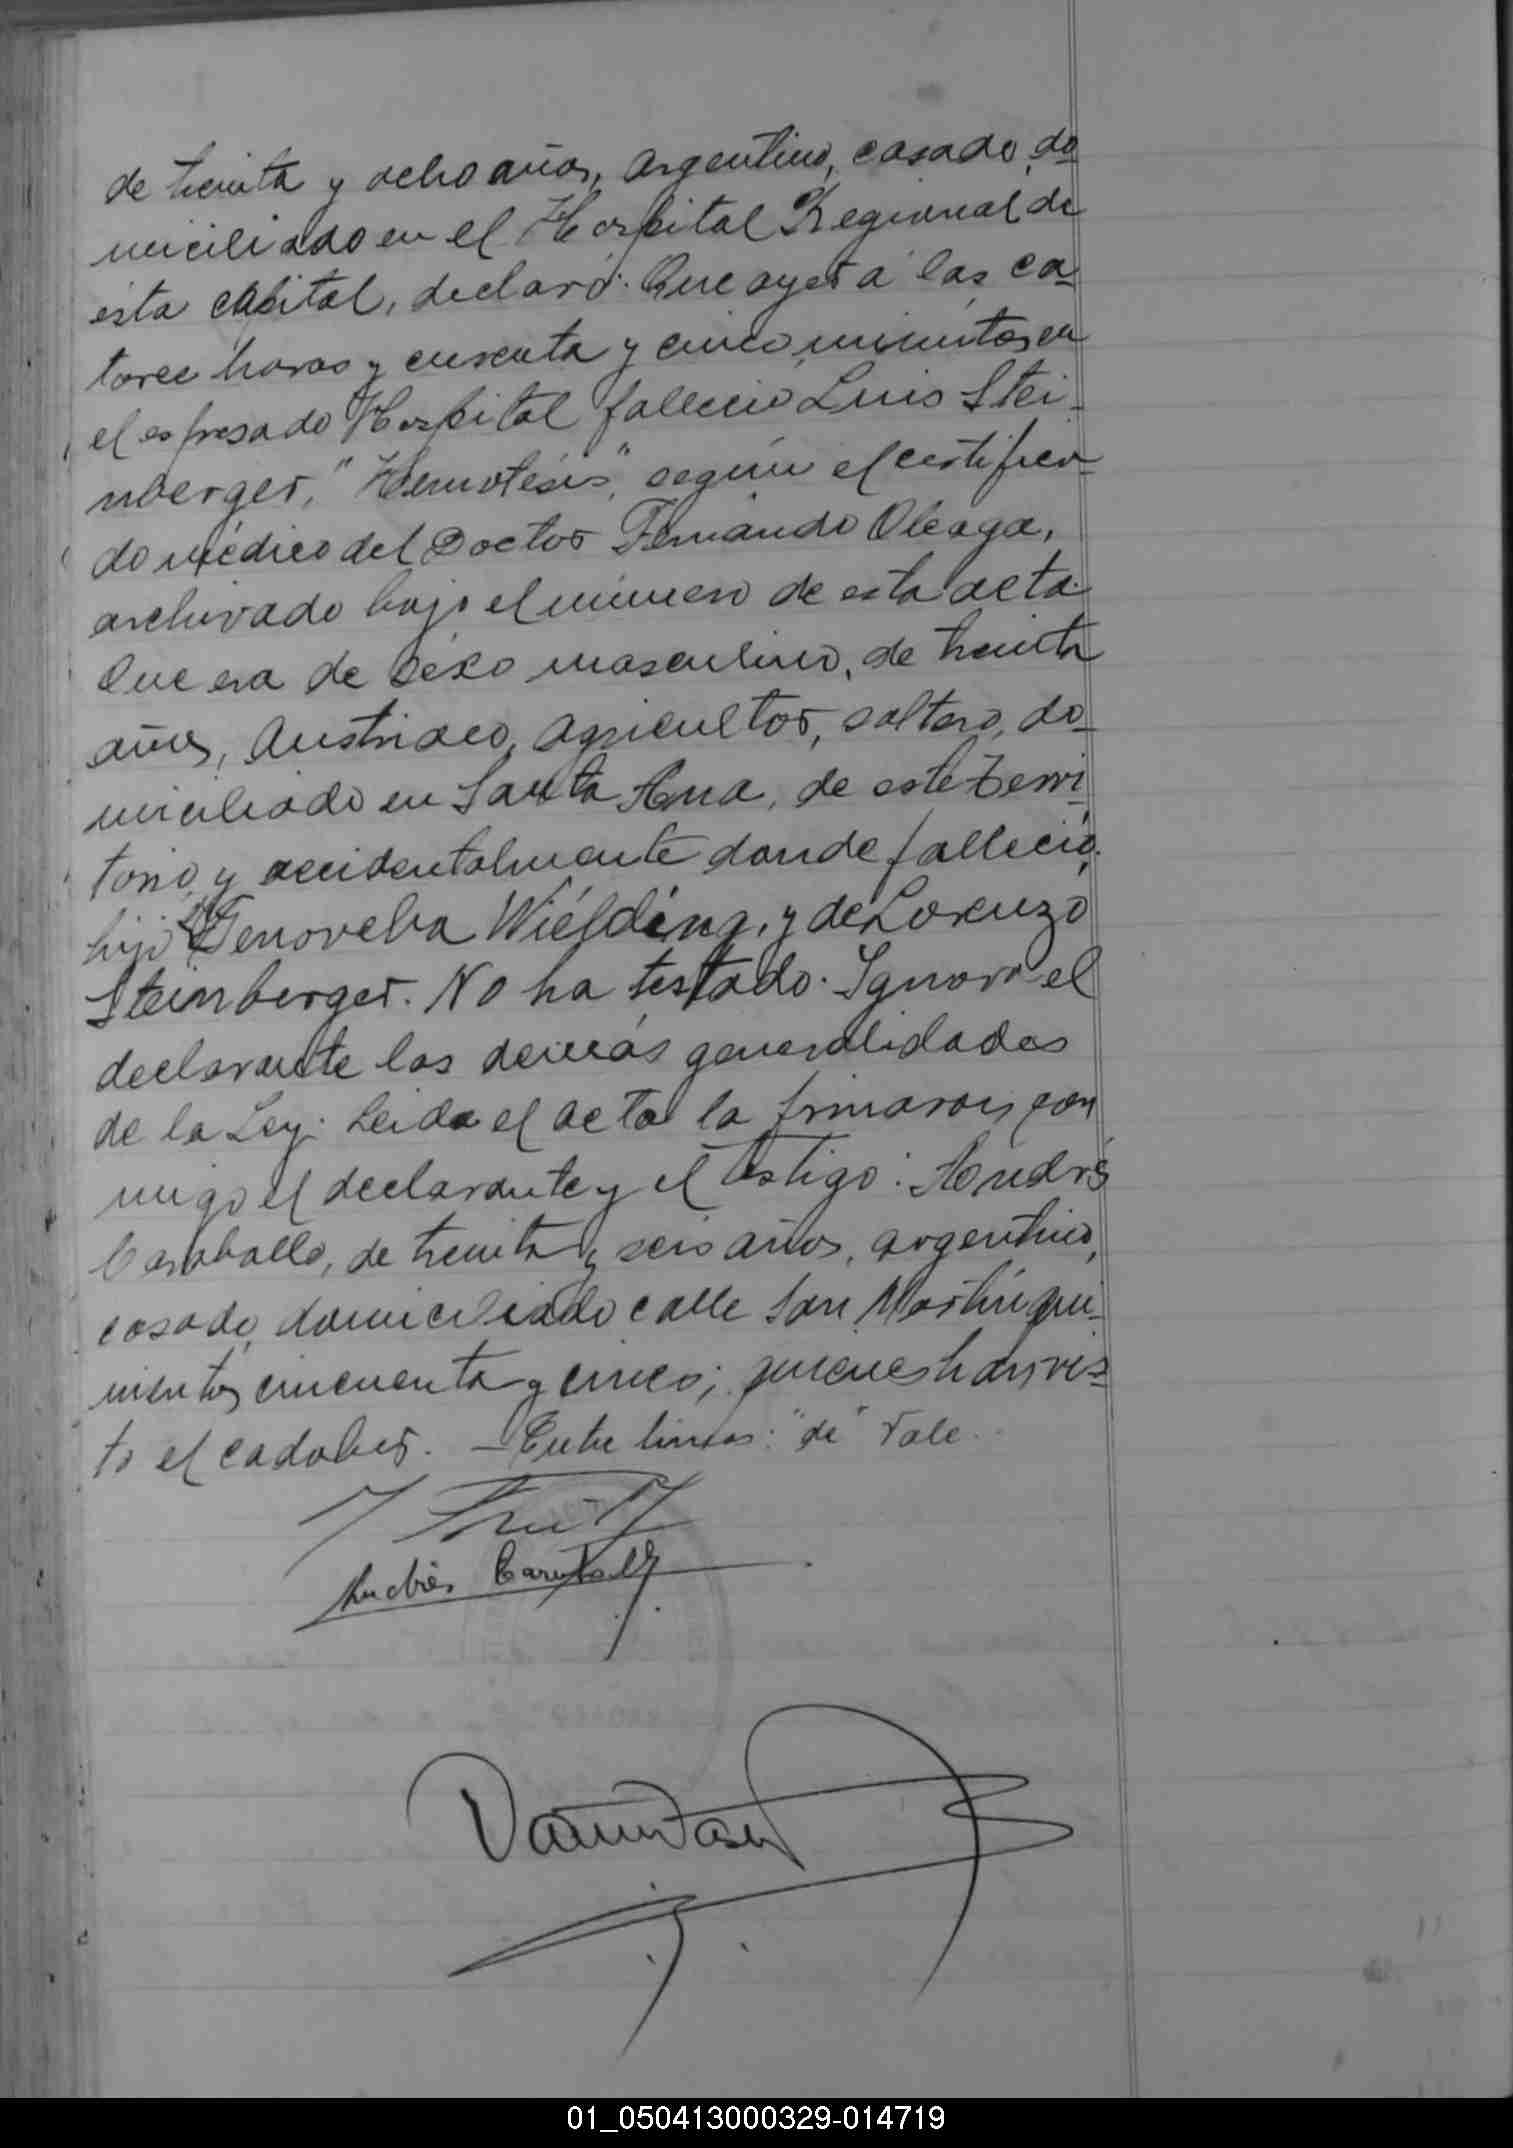 de treinta y ocho años, argentino, casado, do-
miciliado en el Hospital Regional de
esta capital, declaró: Que ayer á las ca-
torce horas y cuarenta y cinco minutos en
el espresado Hospital falleció Luis Stei-
nberger, "Hemotesis", según el certifica-
do médico del Doctor Fernando Oleaga,
archivado bajo el número de esta acta.
Que era de sexo masculino, de treinta
años, Austriaco, agricultor, soltero, do-
miciliado en Santa Ana, de este Terri-
torio, y accidentalmente donde falleció;
hijo de Genoveba Wielding, y de Lorenzo
Steinberger. No ha testado. Ignora el
declarante las demás generalidades
de la Ley. Leida el acta la firmaron con-
migo el declarante y el testigo: Andrés
Caraballo, de treinta y seis años, argentino,
casado, domiciliado calle San Martín qui-
nientos cincuenta y cinco; quienes han vis-
to el cadaber. — Entre lineas: "de" Vale.
Andrés Caraballo
01_050413000329-014719